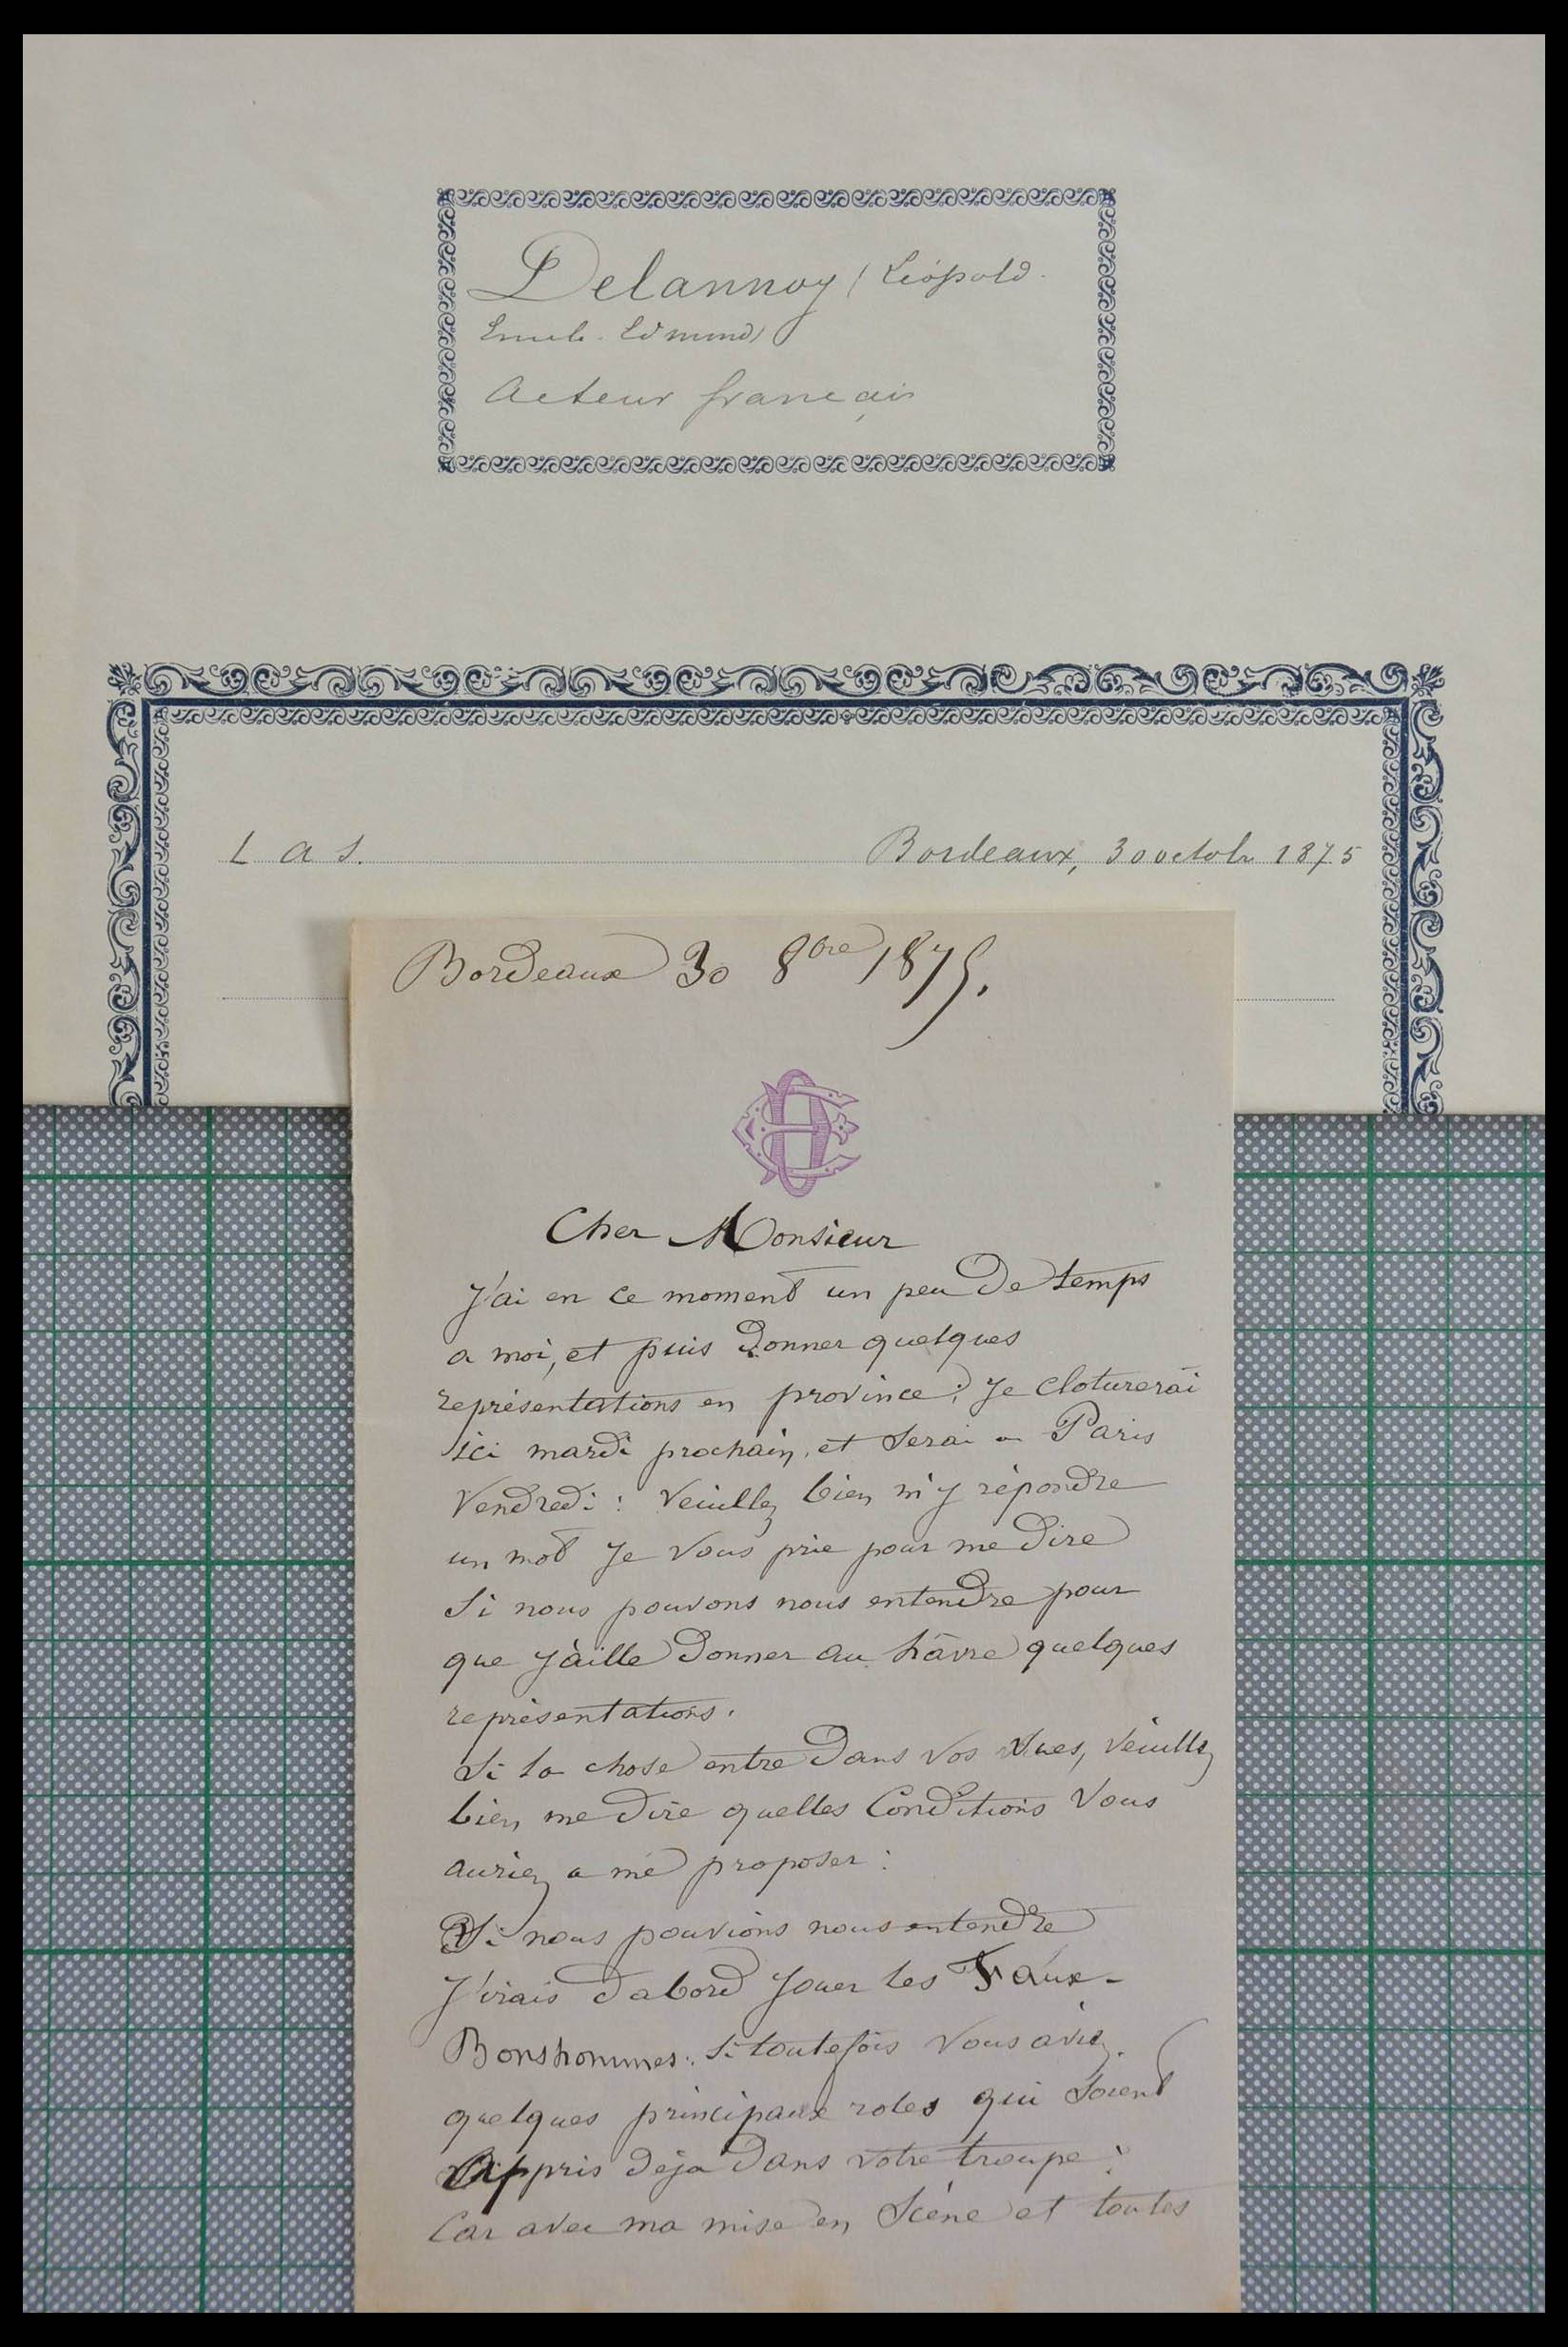 Delannoy (Léopold.
Emile. Edmond)
Acteur français
L a s.
Bordeaux, 30 octobr 1875
Bordeaux 30 8bre 1875.
Cher Monsieur
J'ai en ce moment un peu de temps
a moi, et puis donner quelques
représentations en province; Je cloturerai
ici mardi prochain, et serai a Paris
Vendredi: Veuillez bien m'y répondre
un mot Je vous prie pour me dire
Si nous pouvons nous entendre pour
que J'aille donner au hâvre quelques
représentations.
Si la chose entre dans vos vues, Veuillez
bien me dire quelles Conditions Vous
auriez a me proposer:
Si nous pouvions nous entendre
J'irais d'abord Jouer les Faux-
Bonshommes: si toutefois Vous aviez
quelques principaux roles qui soient
appris déja dans votre troupe:
Car avec ma mise en Scène et toutes